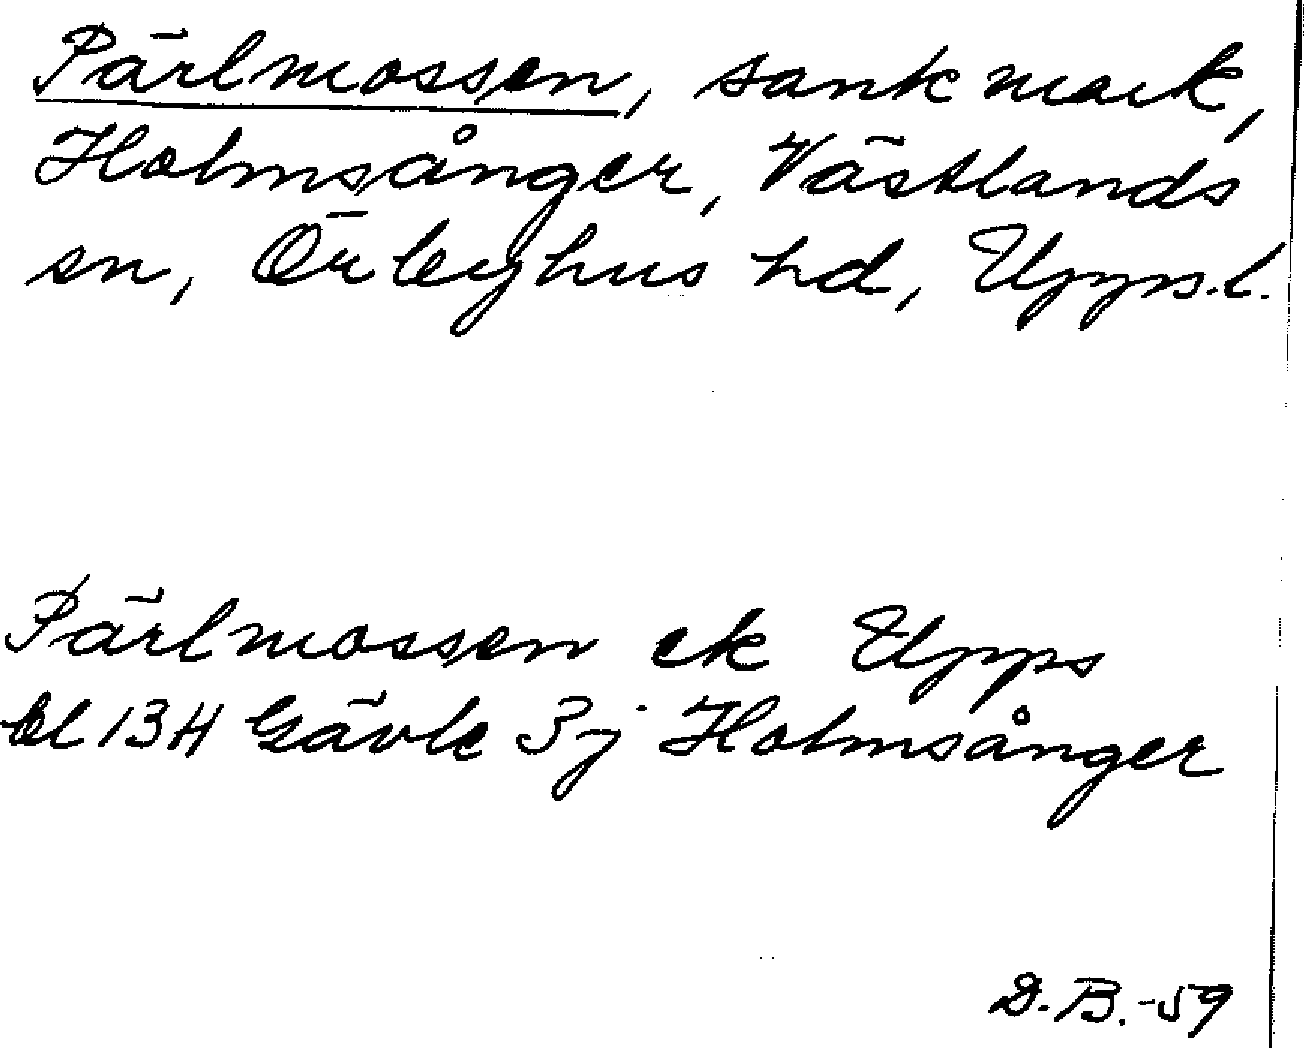 Pärlmossen, sank mark,
Holmsånger, Västlands
sn, Örbyhus hd, Upps.l.
Pärlmossen ek Upps
bl 13H Gävle 3j Holmsånger
D.B.-59